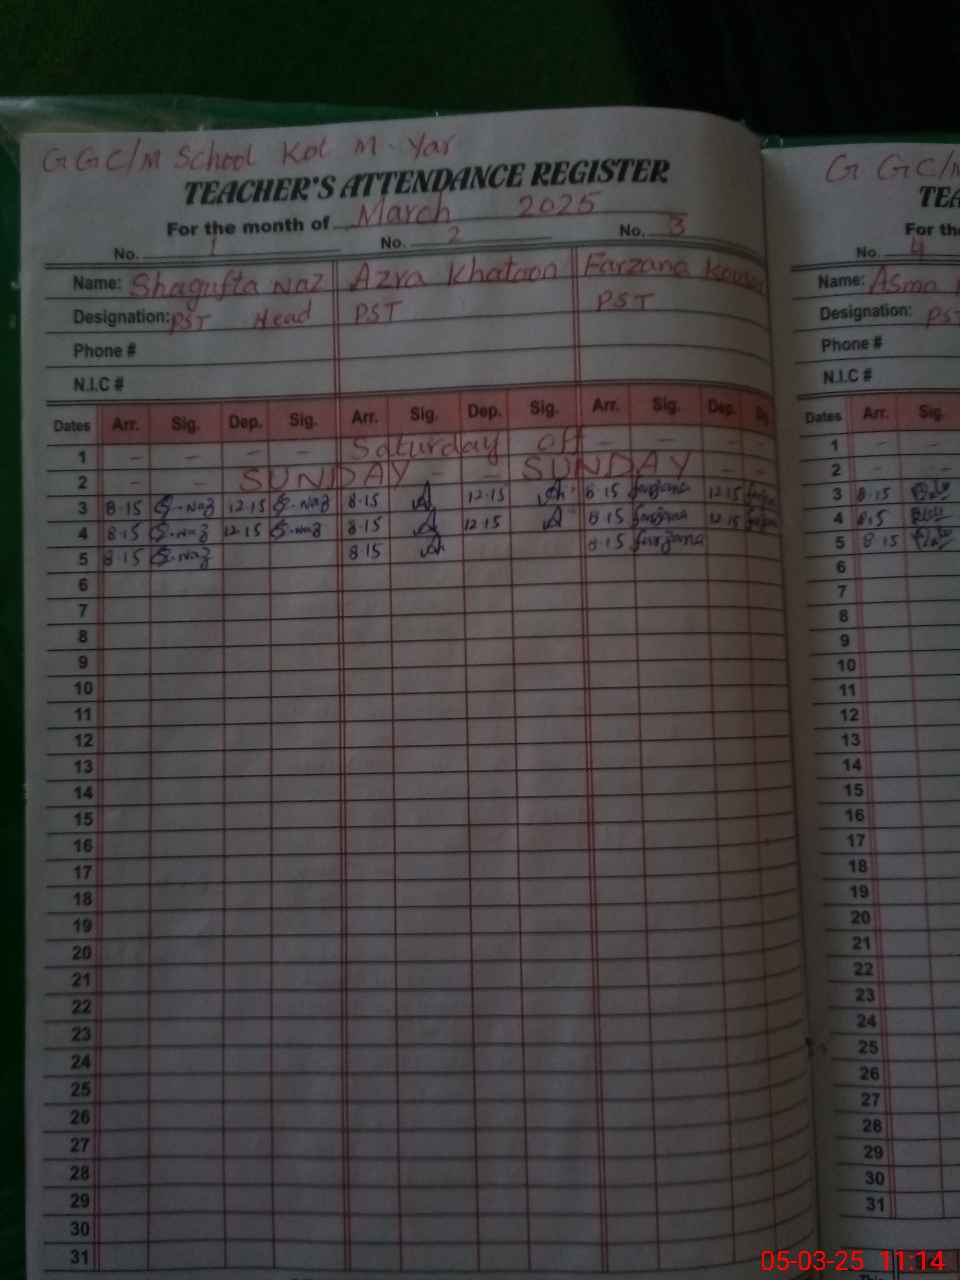 GGC/M School Kot M. Yar
TEACHER'S ATTENDANCE REGISTER
For the month of March 2025
No. 1 No. 2 No. 3
Name: Shagufta Naz Azra Khatoon Farzana
Designation: PST Head PST PST
Phone #
N.I.C #
Dates Arr. Sig. Dep. Sig. Arr. Sig. Dep. Sig. Arr. Sig. Dep.
1 - - - - Saturday off - - - -
2 - - SUNDAY - - SUNDAY
3 8.15 S.Naz 12.15 S.Naz 8.15 12.15 8.15 farzana 12.15
4 8.15 S.Naz 12.15 S.Naz 8.15 12.15 8.15 farzana 12.15
5 8.15 S.Naz 8.15 8.15 farzana
6
7
8
9
10
11
12
13
14
15
16
17
18
19
20
21
22
23
24
25
26
27
28
29
30
31
G GC/M
TEA
For th
No. 4
Name: Asma
Designation: PST
Phone #
N.I.C #
Dates Arr. Sig.
1 - -
2 - -
3 8.15
4 8.15
5 8.15
6
7
8
9
10
11
12
13
14
15
16
17
18
19
20
21
22
23
24
25
26
27
28
29
30
31
05-03-25 11:14